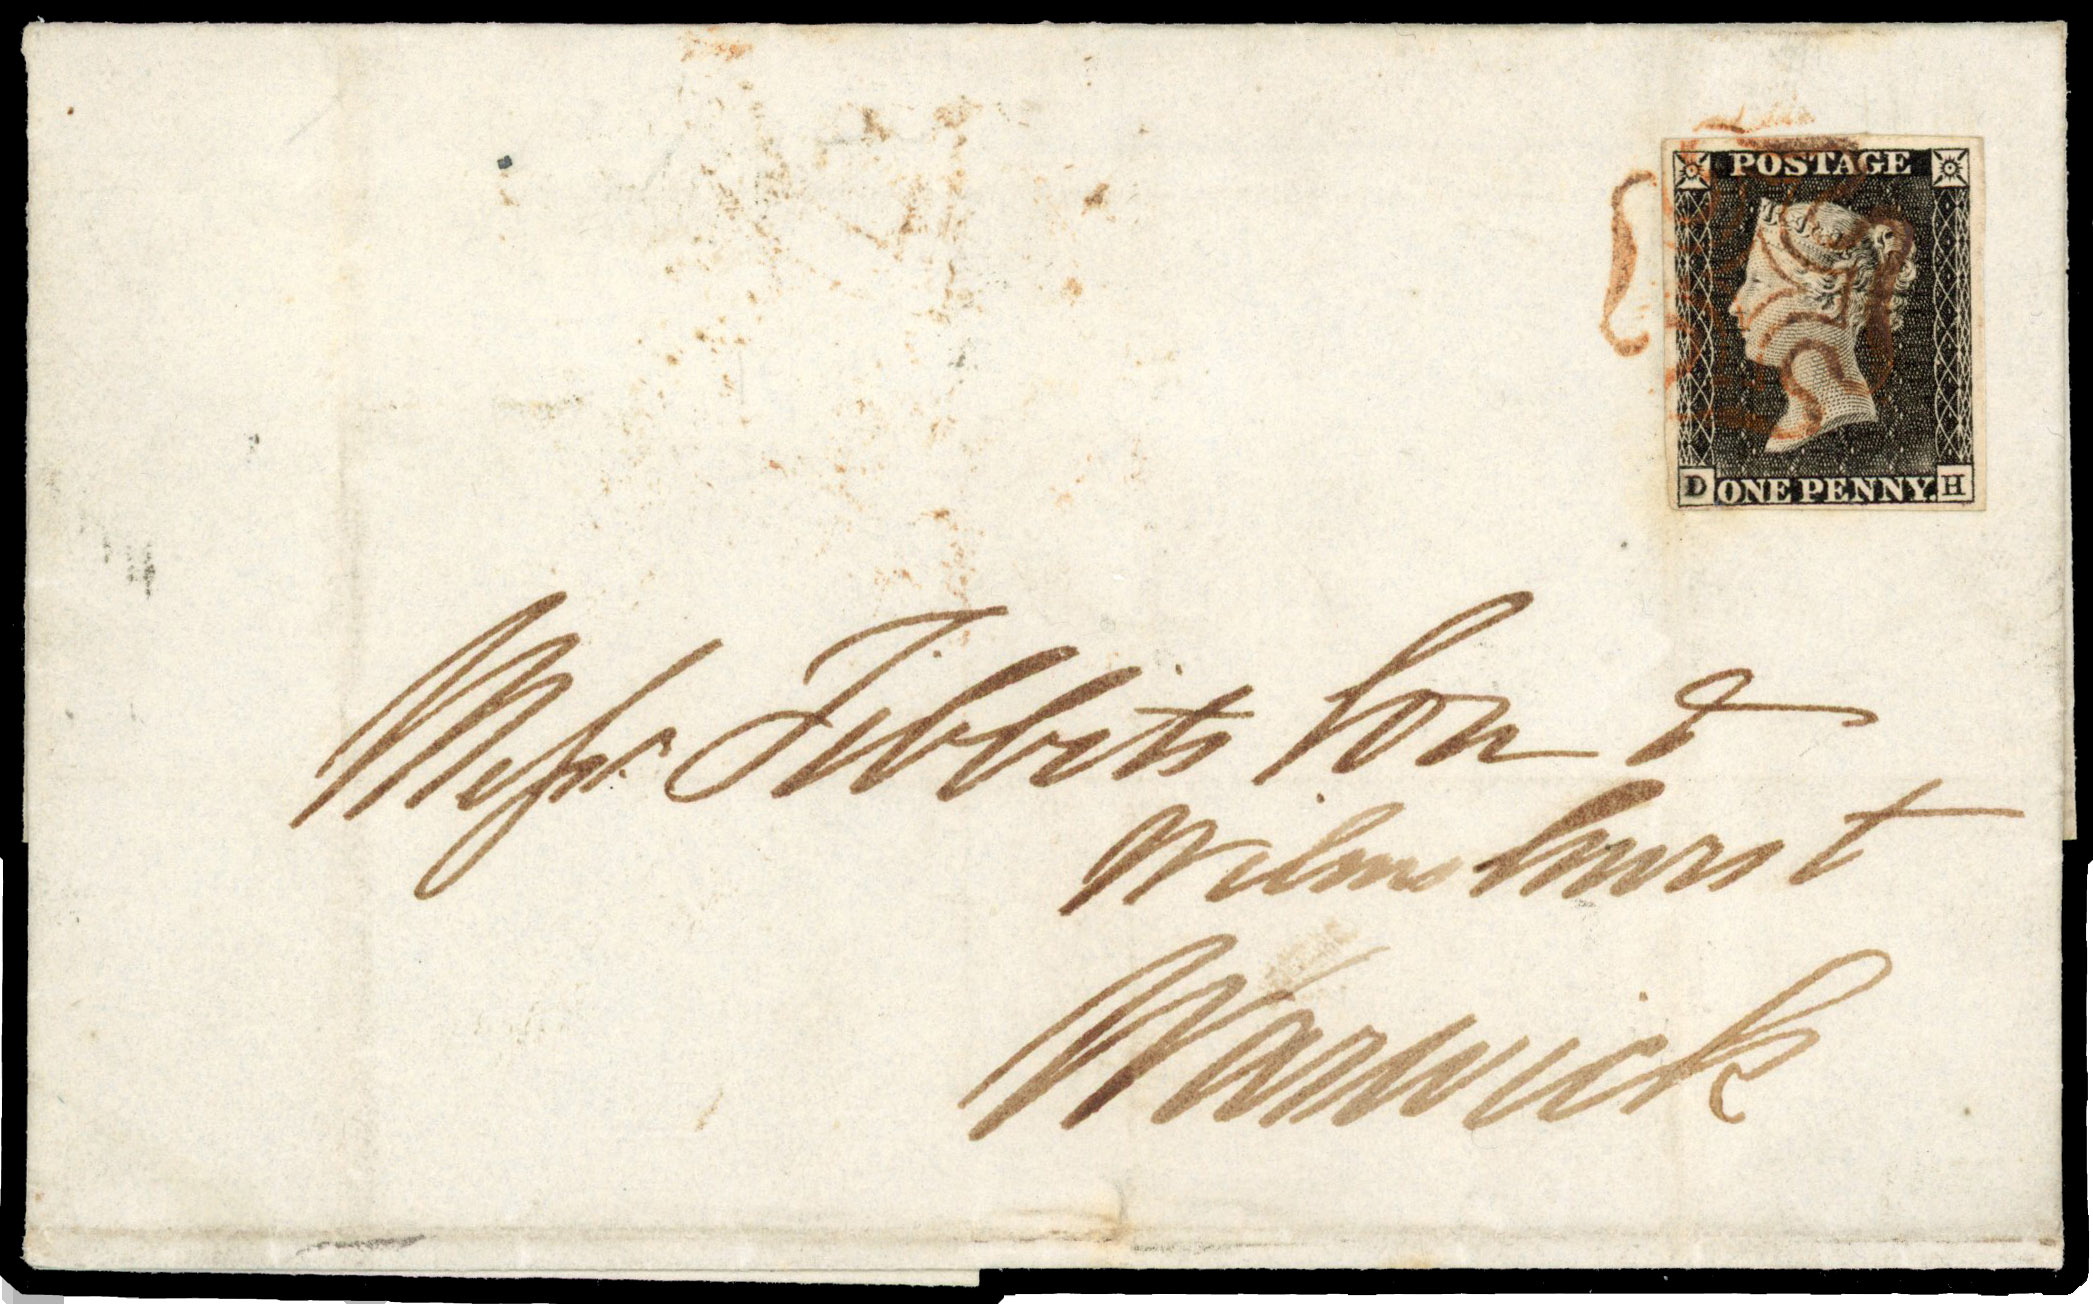 POSTAGE
D ONE PENNY. H
Messrs Tibbits Son &
Wilmshurst
Warwick